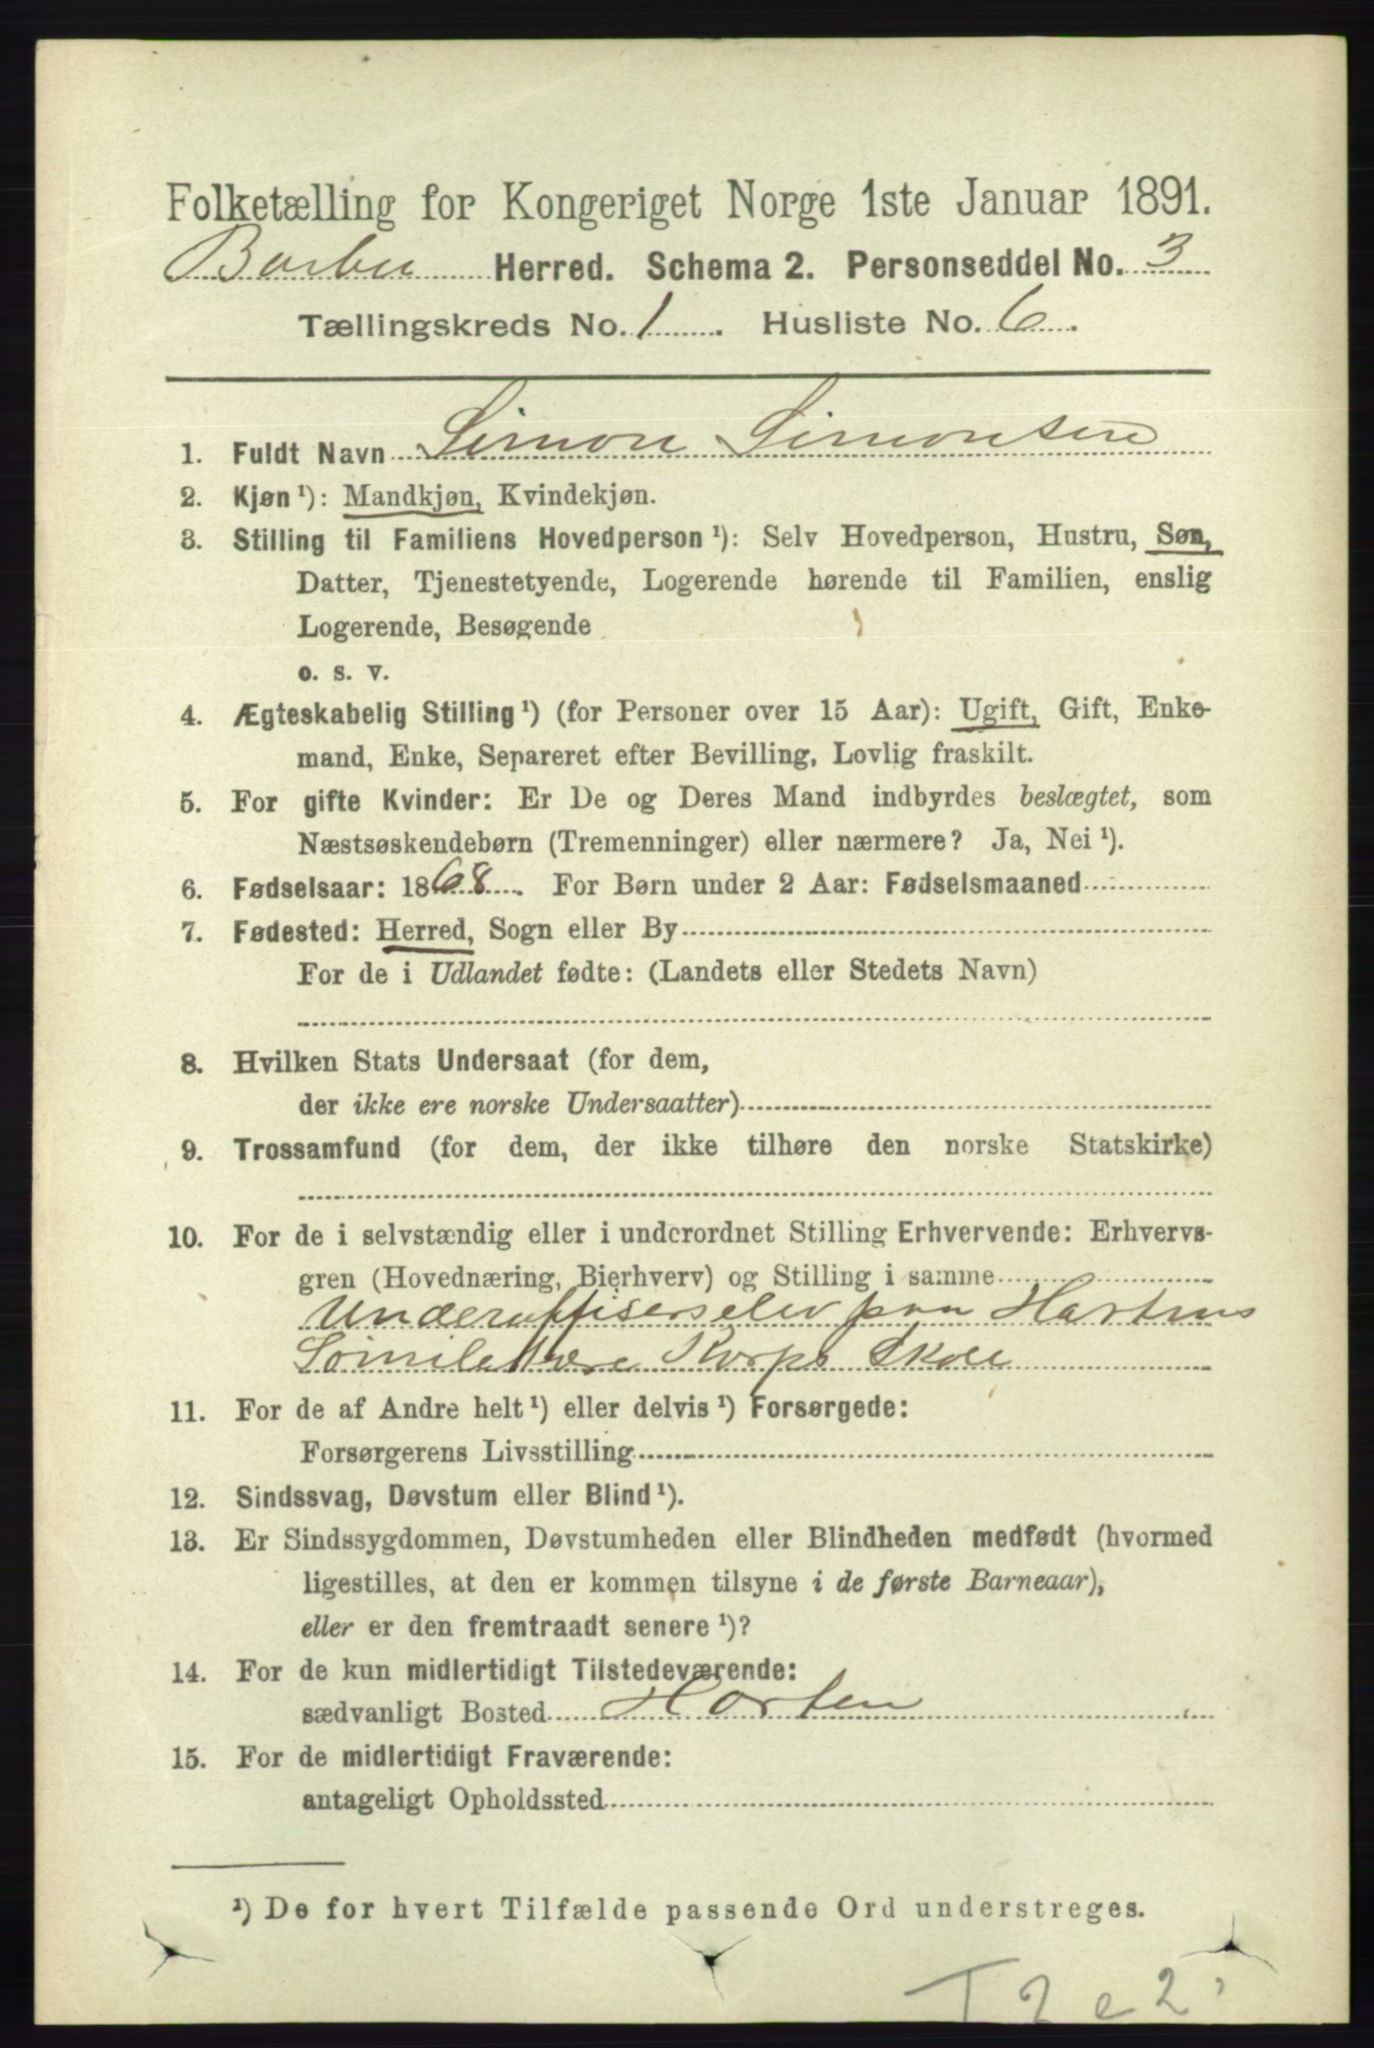 Folketælling for Kongeriget Norge 1ste Januar 1891.
Barbu Herred. Schema 2. Personseddel No. 3
Tællingskreds No. 1. Husliste No. 6.
1. Fuldt Navn Simon Simonsen
2. Kjøn ¹): Mandkjøn, Kvindekjøn.
3. Stilling til Familiens Hovedperson ¹): Selv Hovedperson, Hustru, Søn,
Datter, Tjenestetyende, Logerende hørende til Familien, enslig
Logerende, Besøgende
o. s. v.
4. Ægteskabelig Stilling ¹) (for Personer over 15 Aar): Ugift, Gift, Enke-
mand, Enke, Separeret efter Bevilling, Lovlig fraskilt.
5. For gifte Kvinder: Er De og Deres Mand indbyrdes beslægtet, som
Næstsøskendebørn (Tremenninger) eller nærmere? Ja, Nei ¹).
6. Fødselsaar: 1868. For Børn under 2 Aar: Fødselsmaaned
7. Fødested: Herred, Sogn eller By
For de i Udlandet fødte: (Landets eller Stedets Navn)
8. Hvilken Stats Undersaat (for dem,
der ikke ere norske Undersaatter)
9. Trossamfund (for dem, der ikke tilhøre den norske Statskirke)
10. For de i selvstændig eller i underordnet Stilling Erhvervende: Erhvervs-
gren (Hovednæring, Bierhverv) og Stilling i samme
Underoffiserselev paa Hortens
Sømilettære Korps Skole
11. For de af Andre helt ¹) eller delvis ¹) Forsørgede:
Forsørgerens Livsstilling
12. Sindssvag, Døvstum eller Blind ¹).
13. Er Sindssygdommen, Døvstumheden eller Blindheden medfødt (hvormed
ligestilles, at den er kommen tilsyne i de første Barneaar),
eller er den fremtraadt senere ¹)?
14. For de kun midlertidigt Tilstedeværende:
sædvanligt Bosted Horten
15. For de midlertidigt Fraværende:
antageligt Opholdssted
¹) De for hvert Tilfælde passende Ord understreges.
T2e2